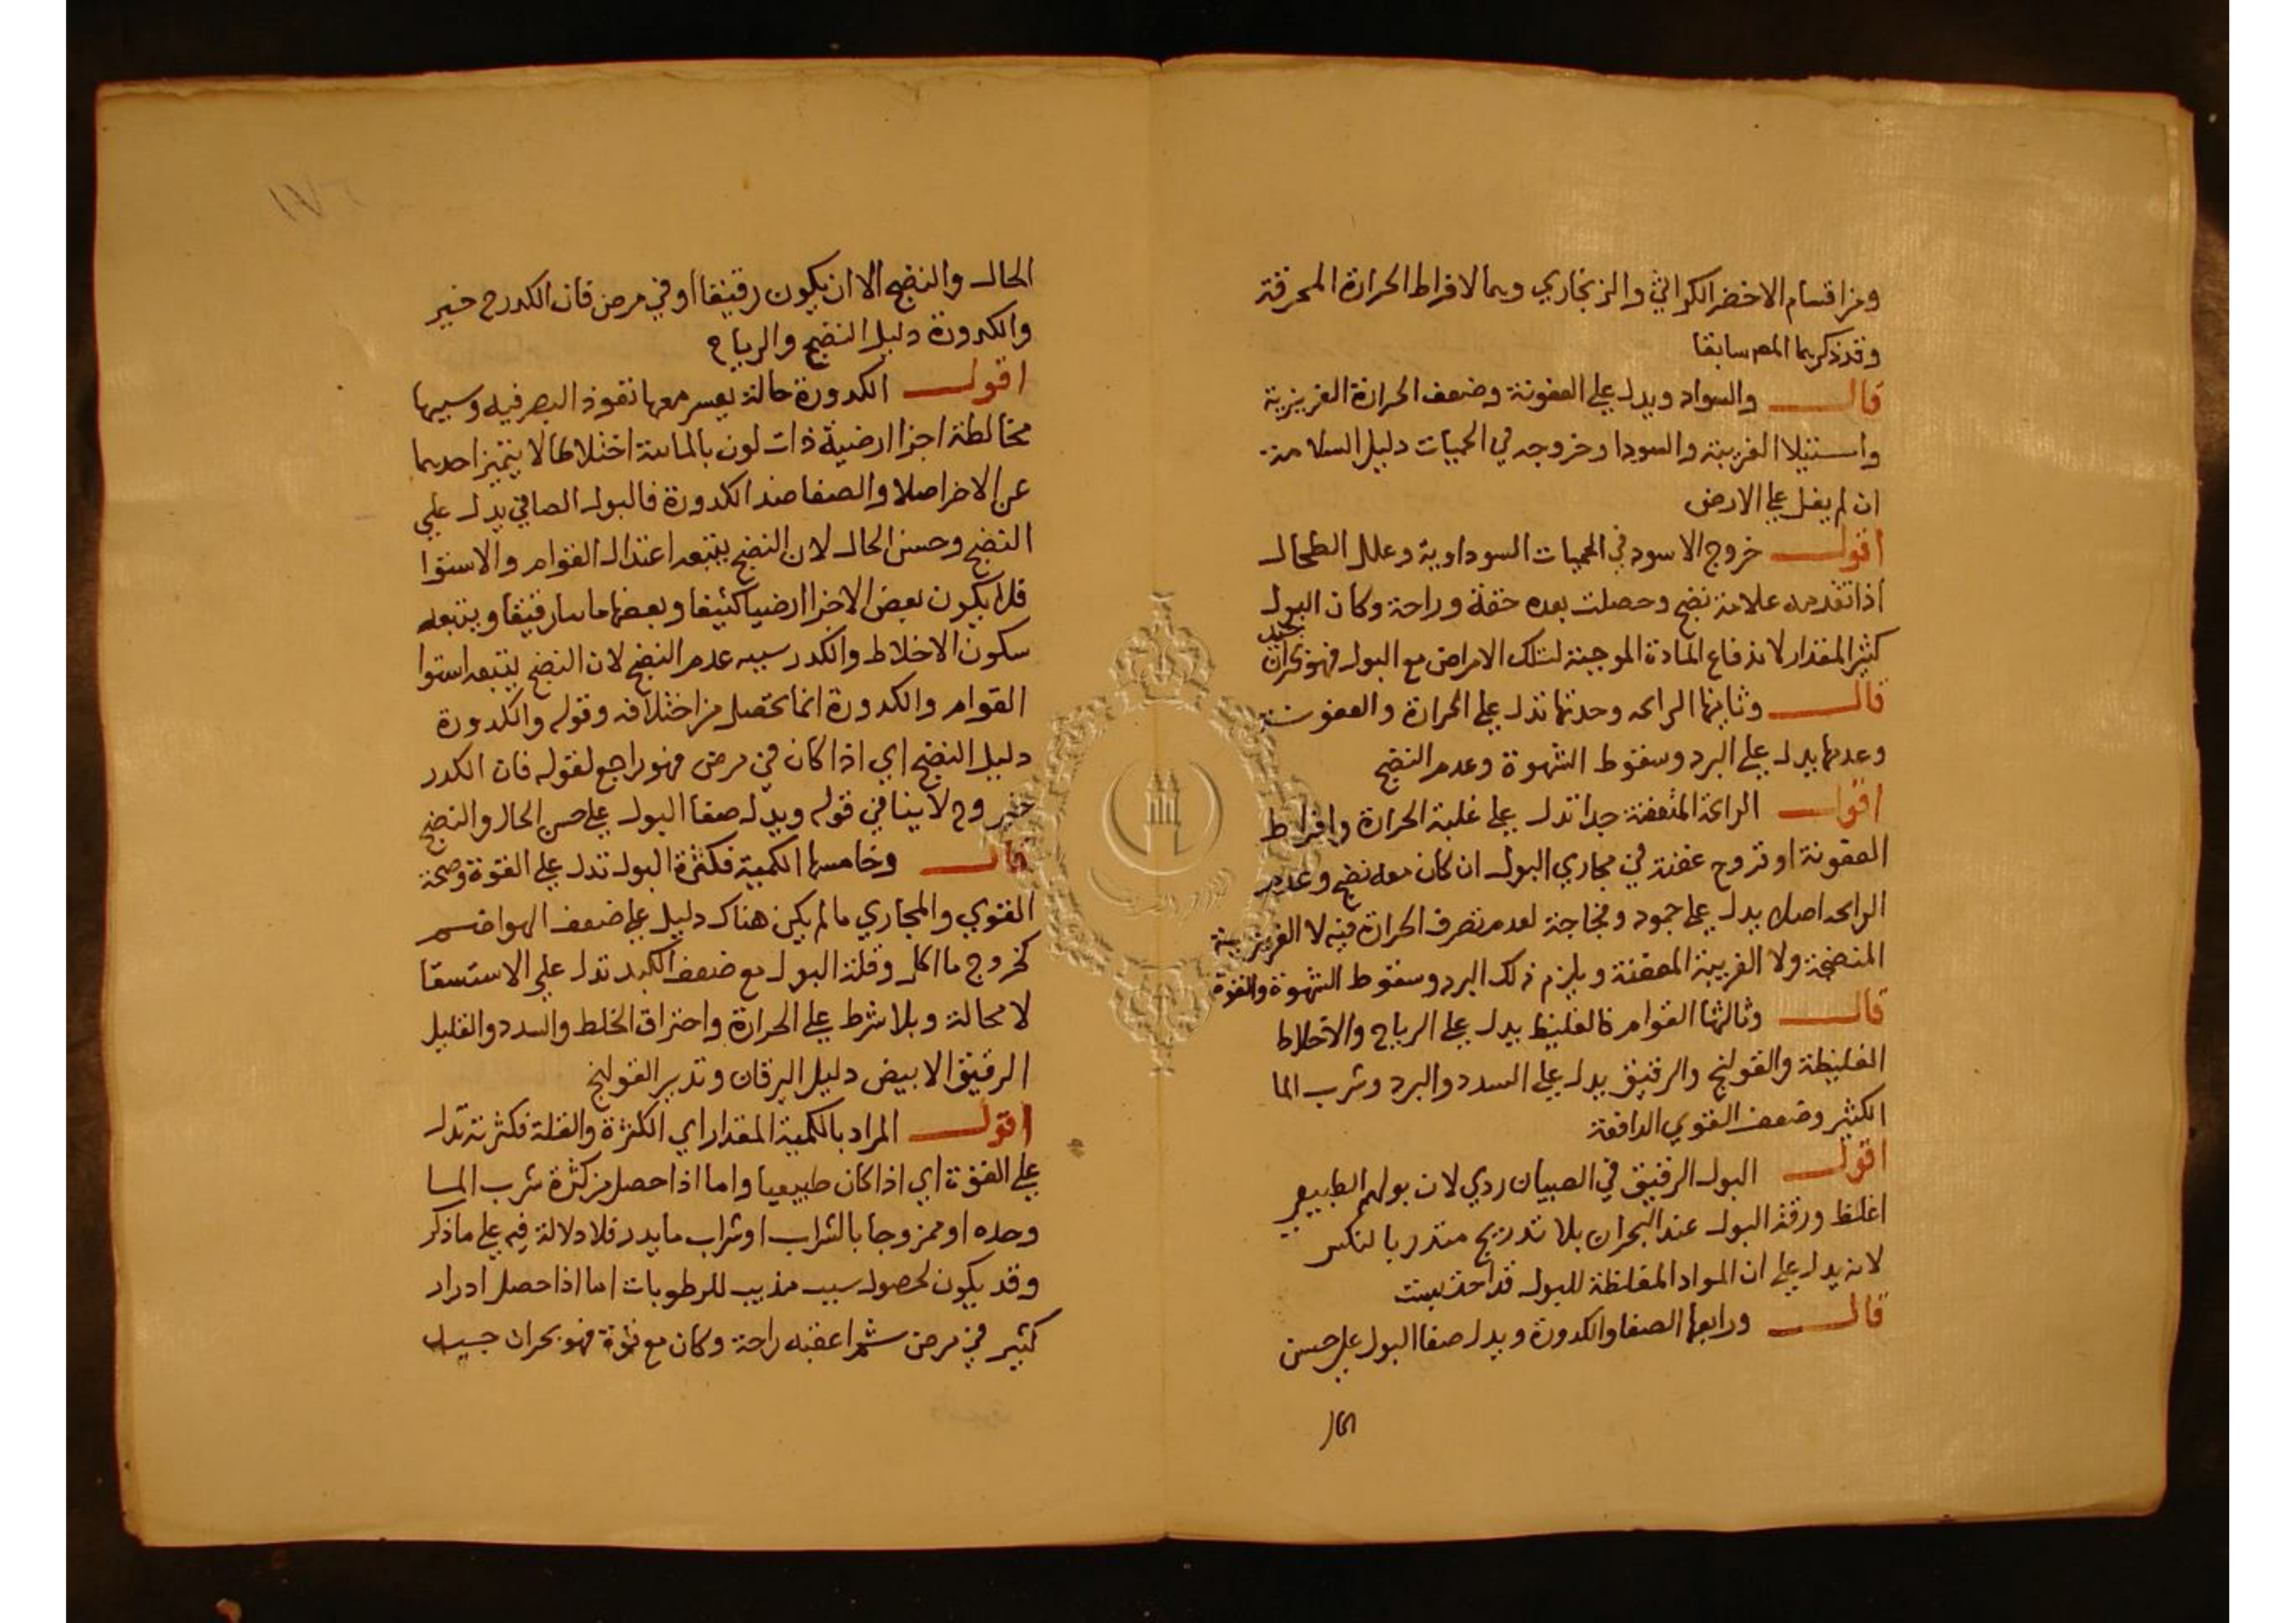 ومن اقسام الاخضر الكراثي والزنجاري وهما لافراط الحرارة المحرقة
وقد ذكرهما المص سابقا
قال والسواد ويدل علي العفونة وضعف الحرارة الغريزية
واستيلا الغريبة والسودا وخروجه في الحميات دليل السلامة
ان لم يغل علي الارض
اقول خروج الاسود في الحميات السوداوية وعلل الطحال
اذا تقدمه علامة نضج وحصلت بعده خفة وراحة وكان البول
كثير المقدار لاندفاع المادة الموجبة لتلك الامراض مع البول فهو بحران جيد
قال وثانيها الرايحه وحدتها تدل علي الحرارة والعفونة
وعدمها يدل علي البرد وسقوط الشهوة وعدم النضج
اقول الرايحة المتعفنة جدا تدل علي غلبة الحرارة وافراط
العفونة او قروح عفنة في مجاري البول ان كان معه نضج وعدم
الرايحه اصلا يدل علي جمود وفجاجة لعدم تصرف الحرارة فيه لا الغريزية
المنضجة ولا الغريبة المعفنة ويلزم ذلك البرد وسقوط الشهوة والقوة
قال وثالثها القوام فالغليظ يدل علي الرياح والاخلاط
الغليظة والقولنج والرقيق يدل علي السدد والبرد وشرب الما
الكثير وضعف القوي الدافعة
اقول البول الرقيق في الصبيان ردي لان بولهم الطبيعي
اغلظ ورقة البول عند البحران بلا تدريج منذر بالنكس
لانه يدل علي ان المواد المغلظة للبول قد احتبست
قال ورابعها الصفا والكدورة ويدل صفا البول علي حسن
الحال
الحال والنضج الا ان يكون رقيقا او في مرض فان الكدر ح خير
والكدورة دليل النضج والرياح
اقول الكدورة حالة يعسر معها نفوذ البصر فيه وسببها
مخالطة اجزا ارضية ذات لون بالمائية اختلاطا لا يتميز احدهما
عن الاخر اصلا والصفا ضد الكدورة فالبول الصافي يدل علي
النضج وحسن الحال لان النضج يتبعه اعتدال القوام والاستوا
فلا يكون بعض الاجزا ارضيا كثيفا وبعضها مائيا رقيقا ويتبعه
سكون الاخلاط والكدر سببه عدم النضج لان النضج يتبعه استوا
القوام والكدورة انما تحصل من اختلافه وقوله والكدورة
دليل النضج اي اذا كان في مرض فهو راجع لقوله فان الكدر
خير وح لا ينافي قوله ويدل صفا البول علي حسن الحال والنضج
قال وخامسها الكمية فكثرة البول تدل علي القوة وصحة
القوي والمجاري ما لم يكن هناك دليل علي ضعف الهواضم
كخروج ما اكل وقلة البول مع ضعف الكبد تدل علي الاستسقا
لا محالة وبلا شرط علي الحرارة واحتراق الخلط والسدد والقليل
الرقيق الابيض دليل اليرقان وتدبير القولنج
اقول المراد بالكمية المقدار اي الكثرة والقلة فكثرته تدل
علي القوة اي اذا كان طبيعيا واما اذا حصل من كثرة شرب الما
وحده او ممزوجا بالشراب او شراب ما يدر فلا دلالة فيه علي ما ذكر
وقد يكون لحصول سبب مذيب للرطوبات اما اذا حصل ادرار
كثير في مرض ثم اعقبه راحة وكان مع قوة فهو بحران جيد